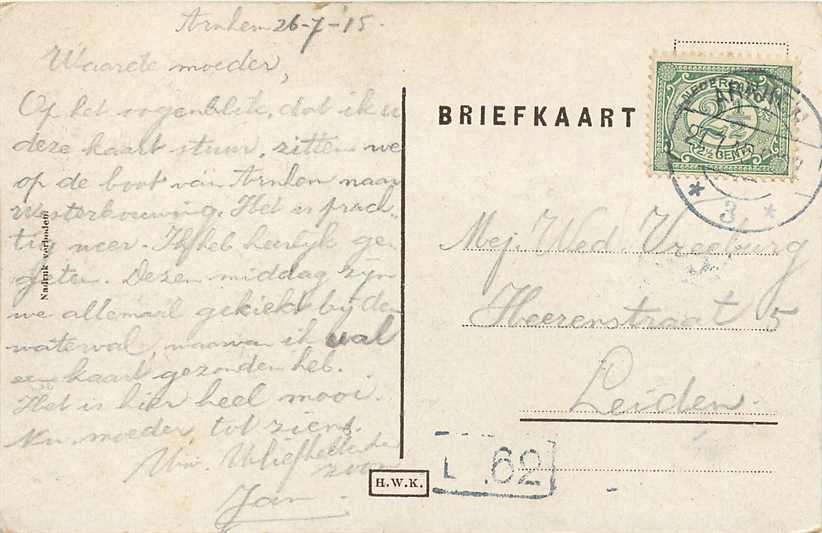 Arnhem 26-7-'15.
Waarde moeder,
Op het oogenblik, dat ik u
deze kaart stuur, zitten we
op de boot van Arnhem naar
Westerbouwing. Het is prach-
tig weer. Ik heb heerlijk ge-
Dezen middag zijn
we allemaal gekiekt bij den
waterval, waarvan ik U al
een kaart gezonden heb.
Het is hier heel mooi.
Nu, moeder tot ziens.
Uw Uliefhebbende
zoon
Jan
Nadruk verboden
BRIEFKAART
NEDERLAND
2½
2½ CENT
ARNHEM
3
Mej. Wed. Vreeburg
Heerenstraat 5
Leiden.
H.W.K.
L 62